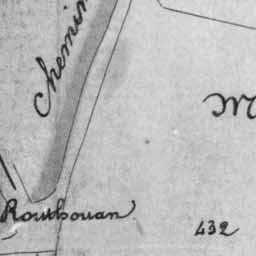 chemin
M
Routhouan
432